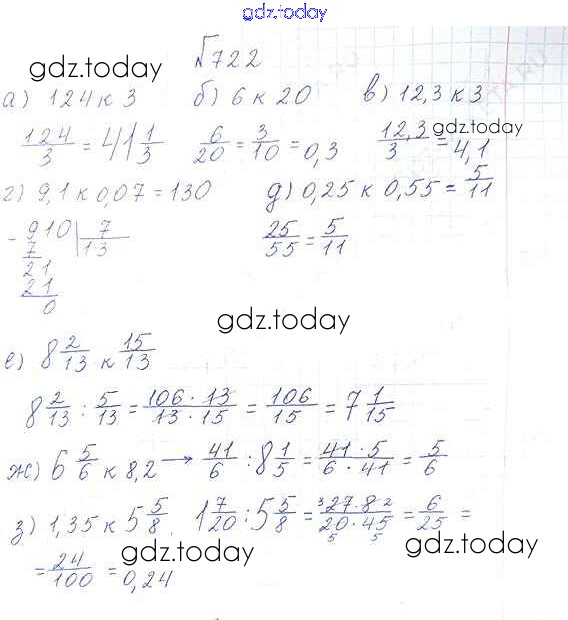 gdz.today
√722
gdz.today
а) 124 к 3   б) 6 к 20   в) 12,3 к 3
124/3 = 41 1/3   6/20 = 3/10 = 0,3   12,3/3 = 4,1
gdz.today
г) 9,1 к 0,07 = 130   д) 0,25 к 0,55 = 5/11
- 910 | 7   25/55 = 5/11
7   13
21
21
0
gdz.today
е) 8 2/13 к 15/13
8 2/13 : 5/13 = 106 · 13/13 · 15 = 106/15 = 7 1/15
ж) 6 5/6 к 8,2 → 41/6 : 8 1/5 = 41 · 5/6 · 41 = 5/6
з) 1,35 к 5 5/8. 1 7/20 : 5 5/8 = 3 27 · 8 2/20 · 45 = 6/25 =
5 5
gdz.today
gdz.today
= 24/100 = 0,24